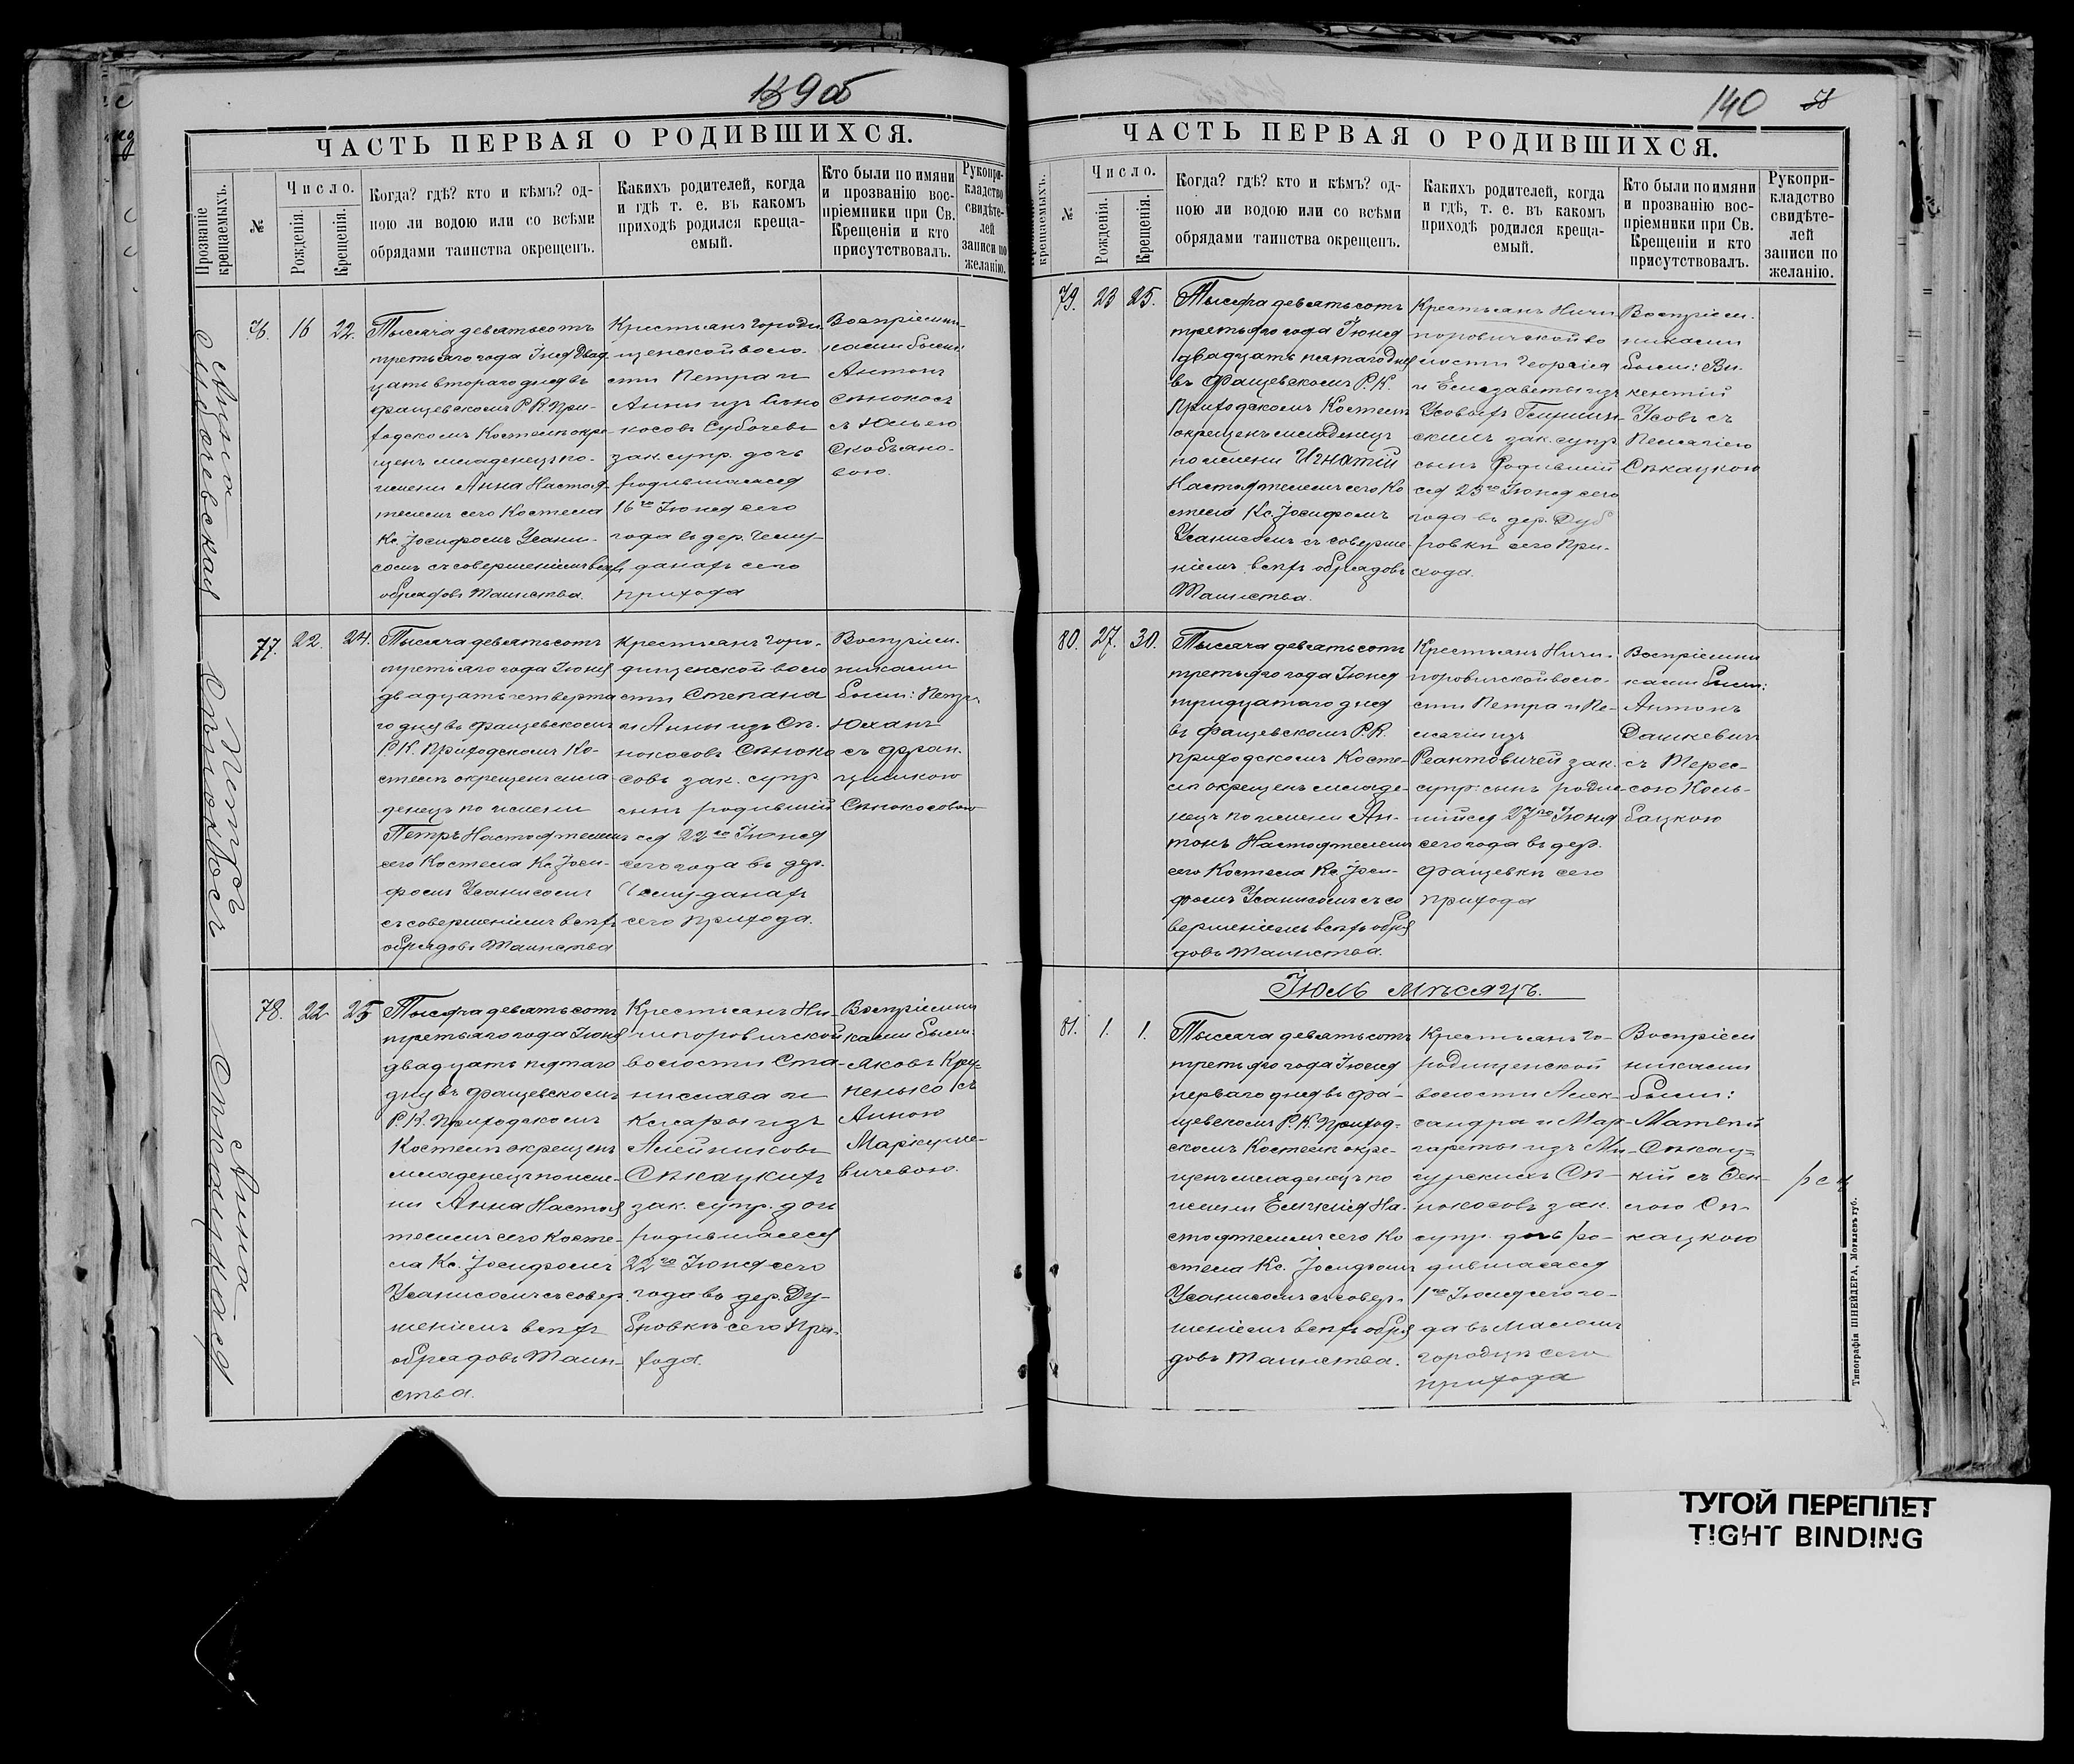 139об
ЧАСТЬ ПЕРВАЯ О РОДИВШИХСЯ.
Прозваніе крещаемыхъ.
№
Число.
Рожденія.
Крещенія.
Когда? гдѣ? кто и кѣмъ? од-
ною ли водою или со всѣми
обрядами таинства окрещенъ.
Какихъ родителей, когда
и гдѣ т. е. въ какомъ
приходѣ родился креща-
емый.
Кто были по имяни
и прозванію вос-
пріемники при Св.
Крещеніи и кто
присутствовалъ.
Рукопри-
кладство
свидѣте-
лей
записи по
желанію.
Анна
76. 16 22.
Тысяча девятьсотъ
третьяго года Іюня Двад
цать втораго дня въ
Фащевскомъ Р. К. При-
ходскомъ Костелѣ окре
щенъ младенецъ по-
имени Анна Настоя-
телемъ сего Костела
Кс. Іосифомъ Усани-
сомъ съ совершеніемъ всѣхъ
обрядовъ Таинства.
Крестьянъ Городи
щенской воло-
сти Петра и
Анны изъ Сѣно
косовъ Субочевъ
зак. супр. дочь
родившаяся
16го Іюня сего
года въ дер.
данахъ сего
прихода
Воспріемни-
ками были:
Антонъ
Сѣнокосъ
съ Юліею
Скобьяно-
вою.
Петръ
Сѣнокосъ
77. 22. 24.
Тысяча девятьсотъ
третьяго года Іюня
двадцать четверта
го дня въ Фащевскомъ
Р. К. Приходскомъ Ко-
стелѣ окрещенъ мла
денецъ по имени
Петръ Настоятелемъ
сего Костела Кс. Іоси-
фомъ Усанисомъ
съ совершеніемъ всѣхъ
обрядовъ Таинства
Крестьянъ Горо-
дищенской воло
сти Степана
и Анны изъ Сѣ-
нокосовъ Сѣноко
совъ зак. супр
сынъ родившій
ся 22го Іюня
сего года въ дер.
данахъ
сего прихода.
Воспріем-
никами
были: Петръ
Юханъ
съ Фран-
цишкою
Сѣнокосовою
Анна
Сѣкацкая
78. 22 25
Тысяча девятьсотъ
третьяго года Іюня
двадцать пятаго
дня въ Фащевскомъ
Р. К. Приходскомъ
Костелѣ окрещенъ
младенецъ по име-
ни Анна Настоя
телемъ сего Косте-
ла Кс. Іосифомъ
Усанисомъ съ совер-
шеніемъ всѣхъ
обрядовъ Таин-
ства.
Крестьянъ Ни-
чипоровичской
волости Ста-
нислава и
Клары изъ
Алейниковъ
Сѣкацкихъ
зак. супр. дочь
родившаяся
22го Іюня сего
года въ дер. Ду-
бровкѣ сего При-
хода.
Воспріемни
ками были:
Яковъ Кру-
пенько съ
Анною
Маркуше-
вичевою.
140 58
ЧАСТЬ ПЕРВАЯ О РОДИВШИХСЯ.
крещаемыхъ.
№
Число.
Рожденія.
Крещенія.
Когда? гдѣ? кто и кѣмъ? од-
ною ли водою или со всѣми
обрядами таинства окрещенъ.
Какихъ родителей, когда
и гдѣ, т. е. въ какомъ
приходѣ родился креща-
емый.
Кто были по имяни
и прозванію вос-
пріемники при Св.
Крещеніи и кто
присутствовалъ.
Рукопри-
кладство
свидѣте-
лей
записи по
желанію.
79. 23 25.
Тысяча девятьсотъ
третьяго года Іюня
двадцать пятаго дня
въ Фащевскомъ Р. К.
Приходскомъ Костелѣ
окрещенъ младенецъ
по имени Игнатій
Настоятелемъ сего Ко
стела Кс. Іосифомъ
Усанисомъ съ соверше-
ніемъ всѣхъ обрядовъ
Таинства.
Крестьянъ Ничи
поровичской во
лости Георгія
и Елизаветы изъ
Усовыхъ
зак. супр
сынъ родившій
ся 23го Іюня сего
года въ дер. Дуб
ровкѣ сего При-
хода.
Воспріем-
никами
были: Ви-
кентій
Усовъ съ
Пелагіею
Сѣкацкою
80. 27. 30.
Тысяча девятьсотъ
третьяго года Іюня
тридцатаго дня
въ Фащевскомъ Р. К.
приходскомъ Косте-
лѣ окрещенъ младе-
нецъ по имени Ан-
тонъ Настоятелемъ
сего Костела Кс. Іоси-
фомъ Усанисомъ съ со
вершеніемъ всѣхъ обря
довъ Таинства.
Крестьянъ Ничи-
поровичской воло-
сти Петра и Пе-
лагіи изъ
зак.
супр: сынъ родив
шійся 27го Іюня
сего года въ дер.
Фащевкѣ сего
прихода
Воспріемни
ками были:
Антонъ
Дашкевичъ
съ Терес-
сою Коль-
бацкою
Іюль мѣсяцъ.
81. 1. 1.
Тысяча девятьсотъ
третьяго года Іюля
перваго дня въ Фа-
щевскомъ Р. К. Приход-
скомъ Костелѣ окре-
щенъ младенецъ по
имени Емилія На-
стоятелемъ сего Ко
стела Кс. Іосифомъ
Усанисомъ съ совер-
шеніемъ всѣхъ обря
довъ Таинства.
Крестьянъ Го-
родищенской
волости Алек-
сандра и Мар-
гареты изъ Ми-
гурскихъ Сѣ-
нокосовъ зак.
супр. дочь ро-
дившаяся
1го Іюля сего го-
да въ Маломъ
городцѣ сего
прихода
Воспріем
никами
были:
Матвѣй
Сѣкац-
кій съ Фек-
лою Сѣ-
кацкою
Типографія ШНЕЙДЕРА, Могилевъ губ.
ТУГОЙ ПЕРЕПЛЕТ
TIGHT BINDING